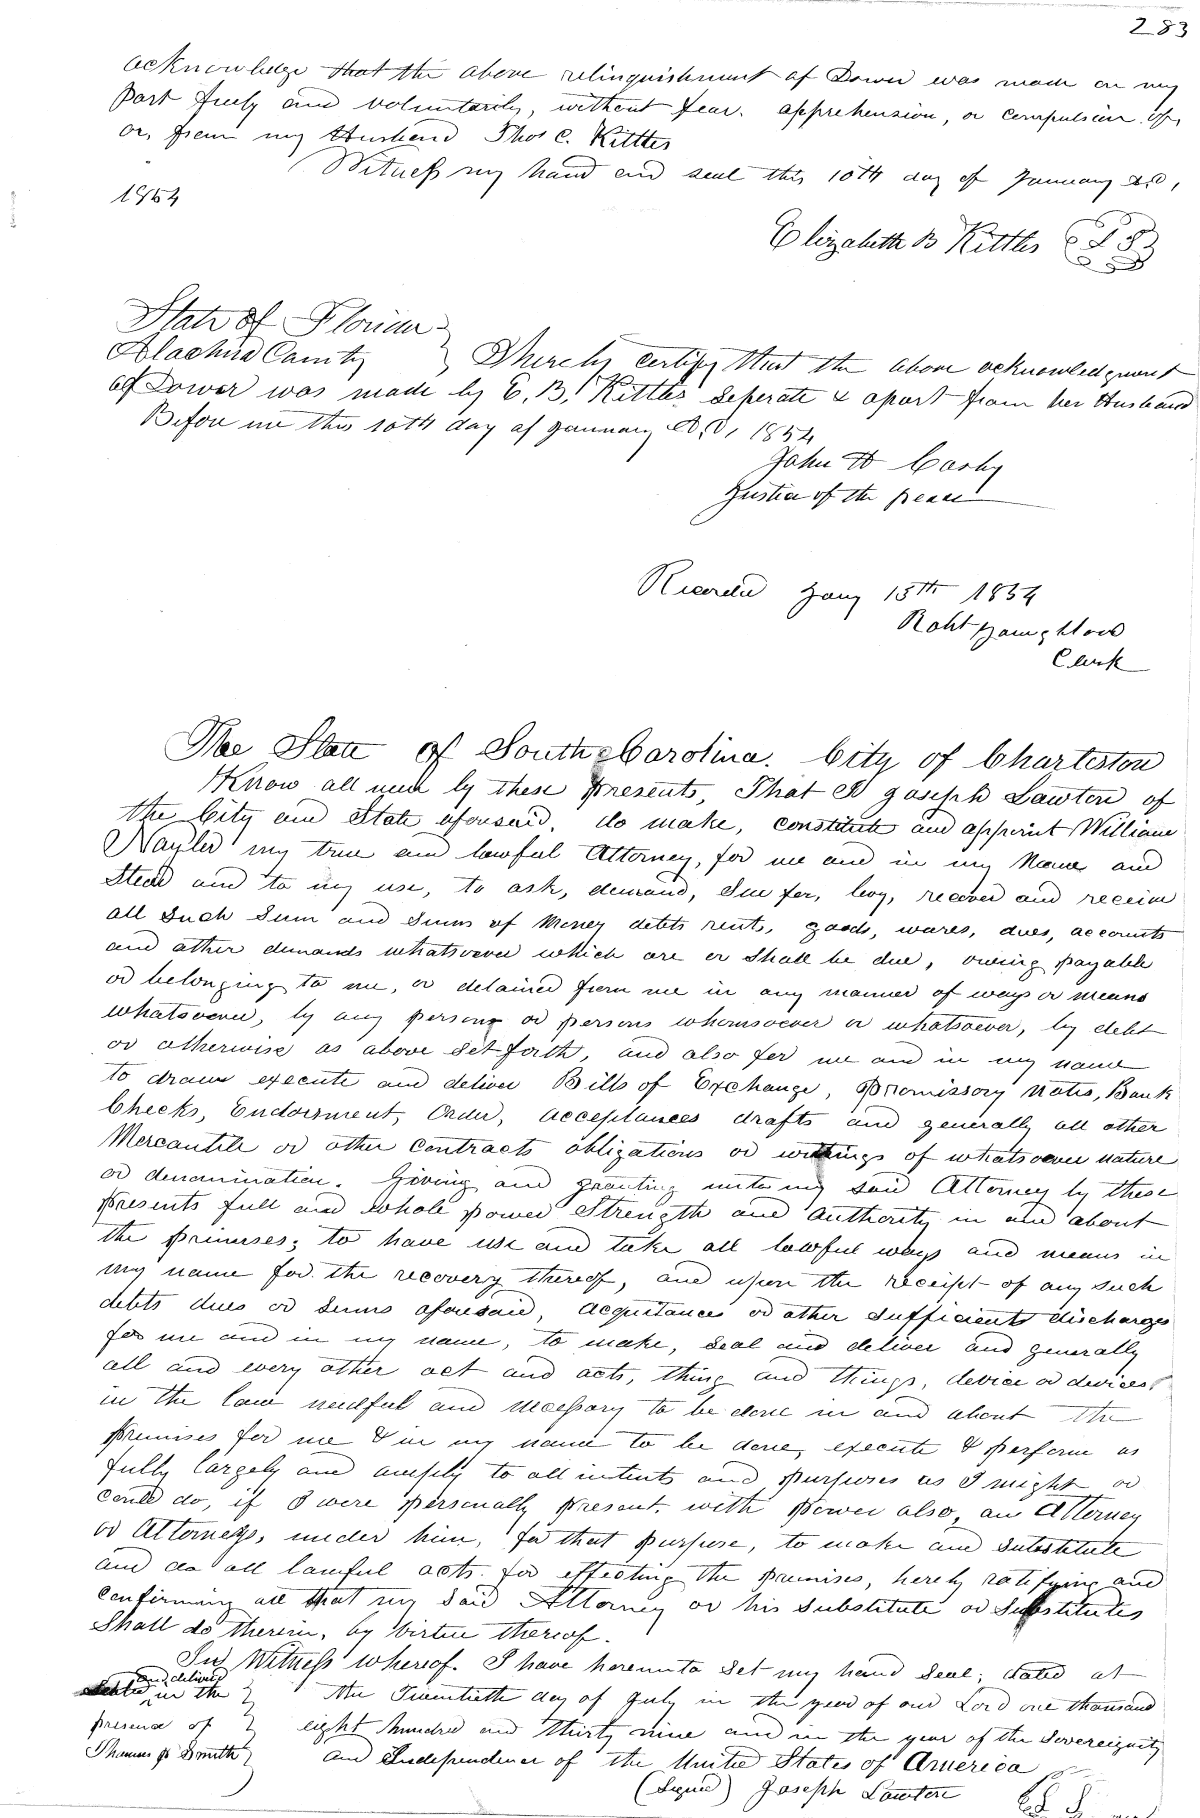 283
acknowledge that the above relinquishment of Dower was made on my
part freely and voluntarily, without fear, apprehension, or compulsion of,
or, from my Husband Thos C. Kittles
Witness my hand and seal this 10th day of January AD,
1854
Elizabeth B Kittles LS
State of Florida
Alachua County } I hereby certify that the above acknowledgment
of Dower was made by E. B. Kittles Seperate & apart from her Husband
Before me this 10th day of January A.D, 1854
John H
Justice of the peace
Recorded Jany 15th 1854
Robt
Clerk
The State of South Carolina. City of Charleston
Know all men by these presents, That I Joseph Lawton of
the City and State aforesaid, do make, constitute and appoint William
Nayler my true and lawful Attorney, for me and in my Name and
Stead and to my use, to ask, demand, Sue for, levy, recover and receive
all such Sum and Sums of Money debts rents, goods, wares, dues, accounts
and other demands whatsoever which are or Shall be due, owing payable
or belonging to me, or detained from me in any manner of ways or means
whatsoever, by any person or persons whomsoever or whatsoever, by debt
or otherwise as above Set forth, and also for me and in my name
to draw execute and deliver Bills of Exchange, promissory Notes, Bank
Checks, Endorsment, Order, acceptances drafts and generally all other
Mercantile or other contracts obligations or writings of whatsoever nature
or denomination. Giving and granting unto my said Attorney by these
presents full and whole power Strength and authority in and about
the primises; to have use and take all lawful ways and means in
my name for the recovery thereof, and upon the receipt of any such
debts dues or Sums aforesaid, acquitances or other sufficients discharges
for me and in my name, to make, seal and deliver and generally
all and every other act and acts, thing and things, device or devices,
in the law needful and necessary to be done in and about the
premises for me & in my name to be done, execute & perform as
fully largely and amply to all intents and purposes as I might or
could do, if I were personally present, with power also, an Attorney
or Attorneys, under him, for that purpose, to make and substitute
and do all lawful acts for effecting the premises, hereby ratifying and
confirming all that my Said Attorney or his Substitute or Substitutes
Shall do therein, by Virtue thereof.
In Witness whereof. I have hereunto Set my hand Seal; dated at
and deliverd
in the } the Twentieth day of July in the year of our Lord one thousand
presence of } eight hundred and thirty nine and in the year of the Sovereignity
Thomas P Smith } and Independence of the United States of America
(Signed) Joseph Lawton L S